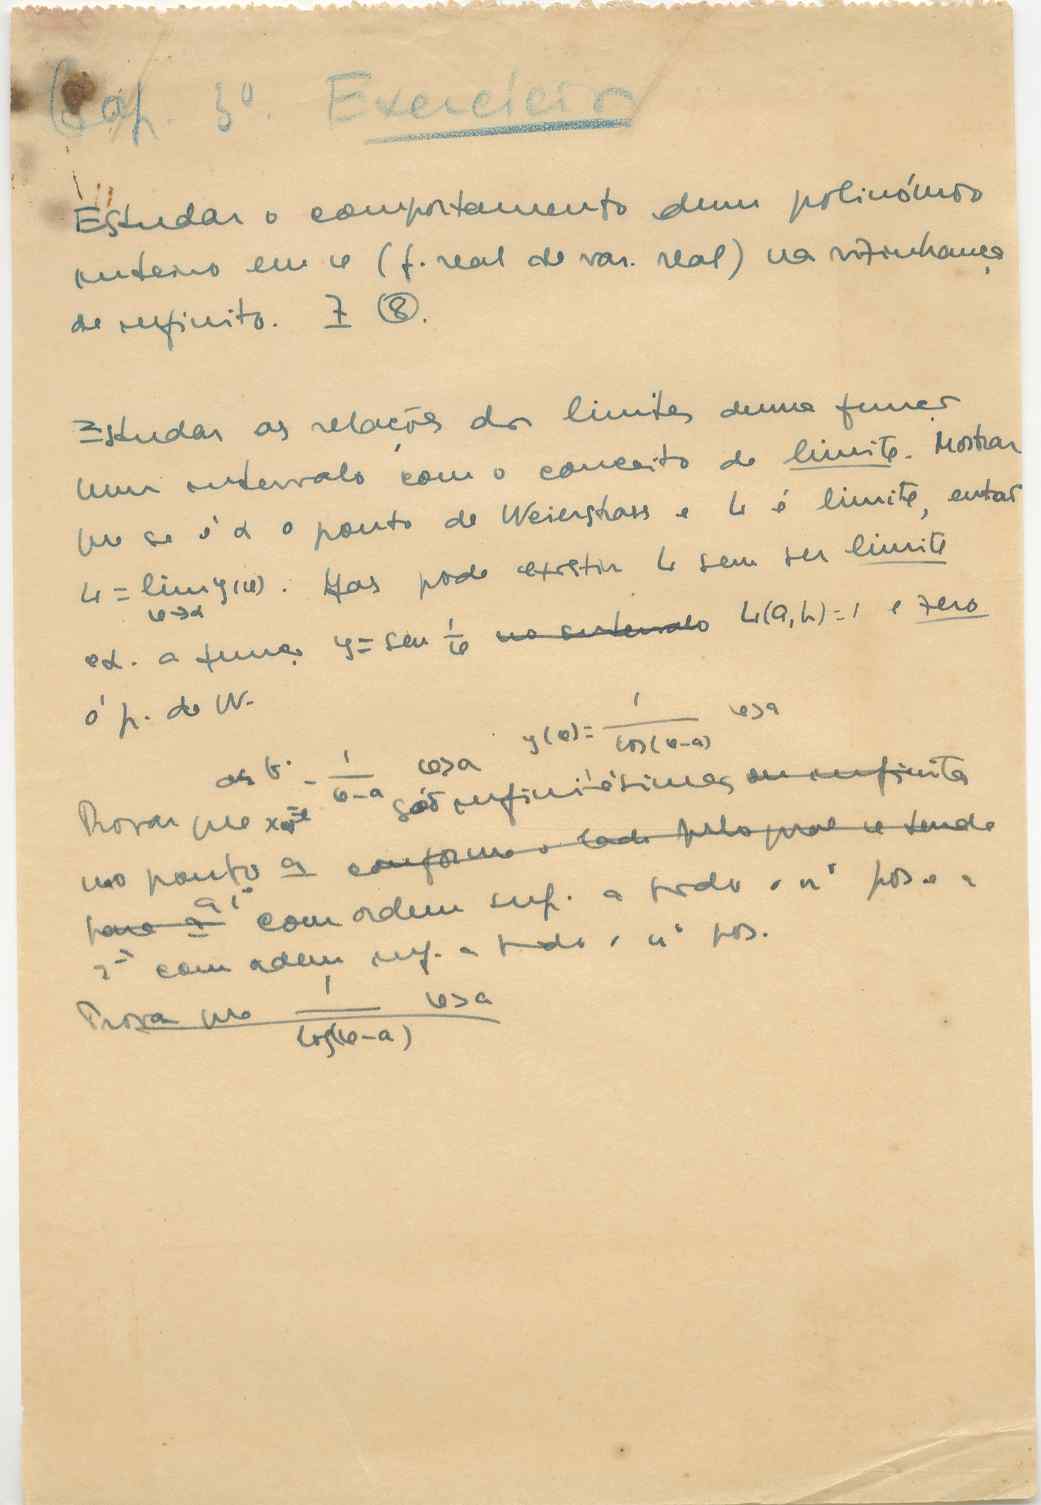 Cap. 3º. Exercícios
Estudar o comportamento dum polinómio
inteiro em x (f. real de var. real) na vizinhança
de infinito. I ⑧.
Estudar as relações dos limites duma função
num intervalo com o conceito de limite. Mostrar
que se é α o ponto de Weierstrass e L é limite, então
L = lim y(x). Mas pode existir L sem ser limite
x→α
ex. a função y = sen 1/x no intervalo L(a,b)=1 e zero
é p. de W.
as f. - 1/(x-a) x>a y(x) = 1/log(x-a) x>a
Provar que são infinitésimas ou infinitas
no ponto a conforme o lado pelo qual x tende
para a a 1ª com ordem sup. a todo o nº pos. e a
2ª com ordem inf. a todo o nº pos.
Provar que 1/log(x-a) x>a